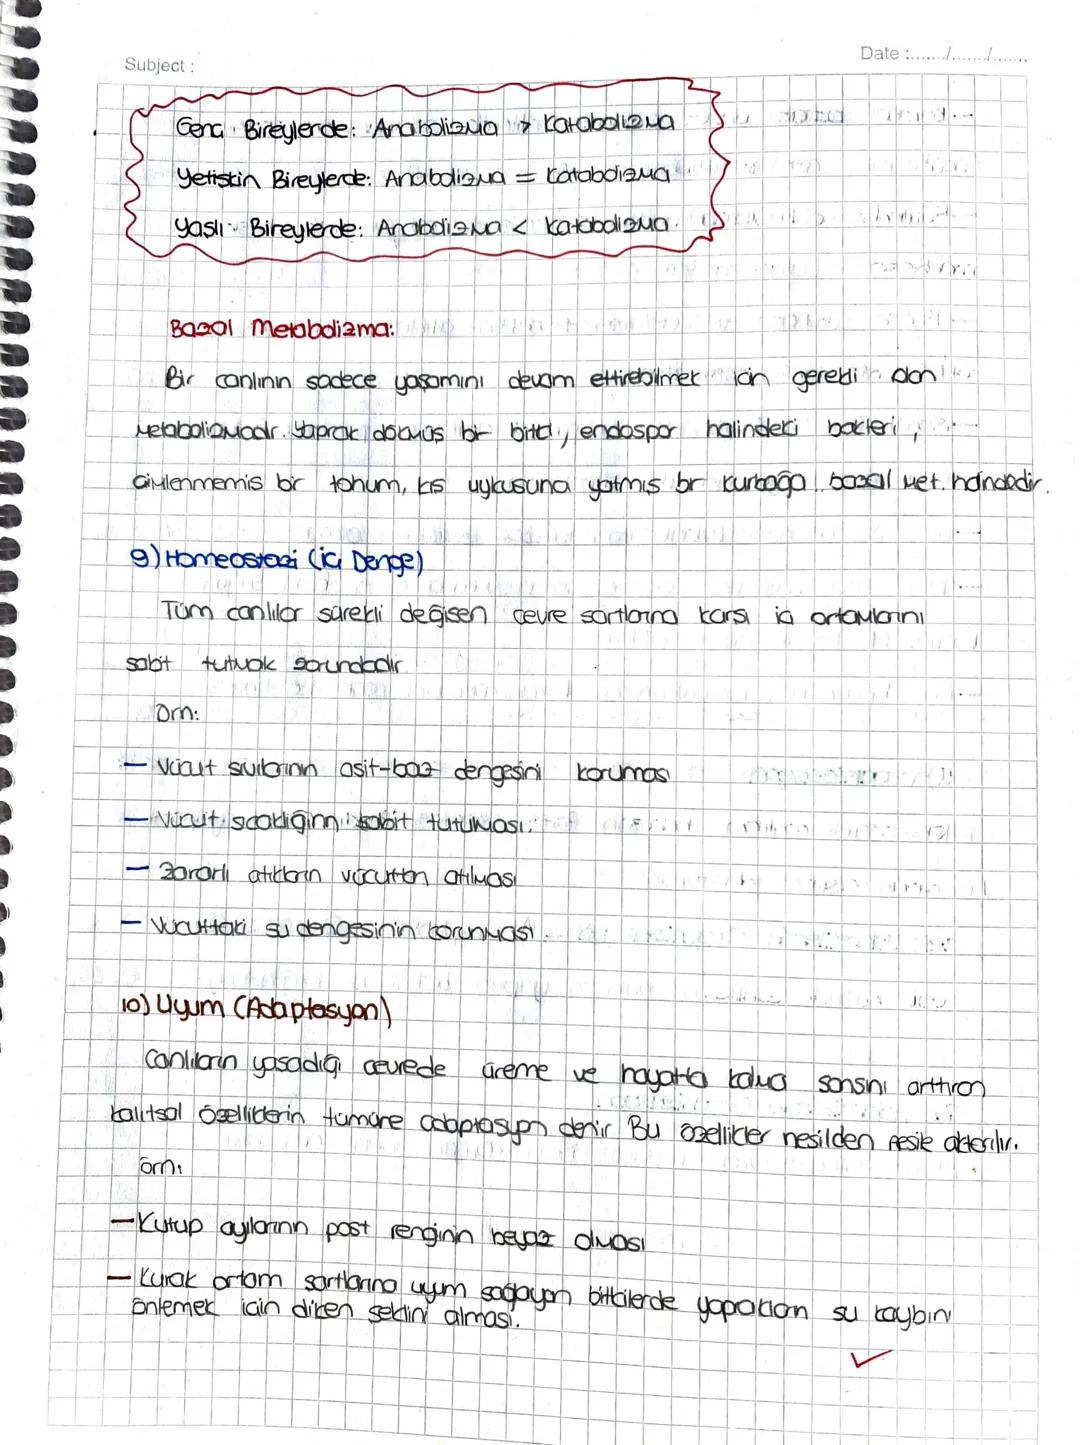 Subject :
Date :......./......./.......
Genç Bireylerde: Anabolizma > Katabolizma
Yetişkin Bireylerde: Anabolizma = Katabolizma
Yaşlı Bireylerde: Anabolizma < Katabolizma.
Bazal Metabolizma:
Bir canlının sadece yaşamını devam ettirebilmek için gerekli olan
metabolizmadır. Yaprak dökmüş bir bitki, endospor halindeki bakteri,
çimlenmemiş bir tohum, kış uykusuna yatmış bir kurbağa bazal met. halindedir.
9) Homeostazi (İç Denge)
Tüm canlılar sürekli değişen çevre şartlarına karşı iç ortamlarını
sabit tutmak zorundadır
Örn:
— Vücut sıvılarının asit-baz dengesini koruması
— Vücut sıcaklığının sabit tutulması.
— Zararlı atıkların vücuttan atılması
— Vücuttaki su dengesinin korunması.
10) Uyum (Adaptasyon)
Canlıların yaşadığı çevrede üreme ve hayatta kalma şansını arttıran
kalıtsal özelliklerin tümüne adaptasyon denir Bu özellikler nesilden nesile aktarılır.
Örn:
— Kutup ayılarının post renginin beyaz olması
— Kurak ortam şartlarına uyum sağayan bitkilerde yapakların su kaybını
önlemek için diken şeklini alması.